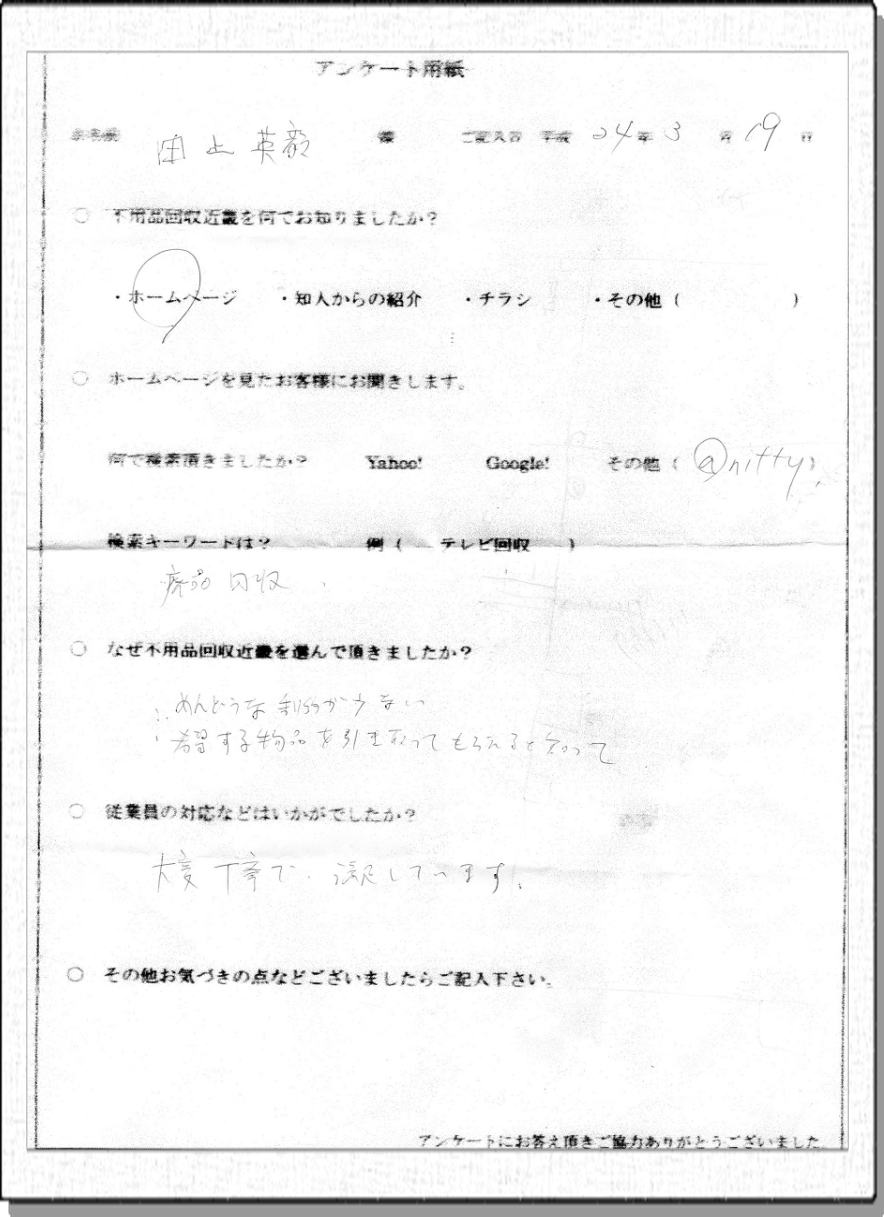 アンケート用紙
お名前 田上英毅 様 ご記入日 平成 24年 3月 19日
○ 不用品回収近畿を何でお知りましたか？
・ホームページ ・知人からの紹介 ・チラシ ・その他（ ）
○ ホームページを見たお客様にお聞きします。
何で検索頂きましたか？ Yahoo! Google! その他（ @nifty ）
検索キーワードは？ 例（ テレビ回収 ）
廃品回収
○ なぜ不用品回収近畿を選んで頂きましたか？
・めんどうな 少ない
・希望する物品を引き取ってもらえると知って
○ 従業員の対応などはいかがでしたか？
大変丁寧で、満足しています。
○ その他お気づきの点などございましたらご記入下さい。
アンケートにお答え頂きご協力ありがとうございました。